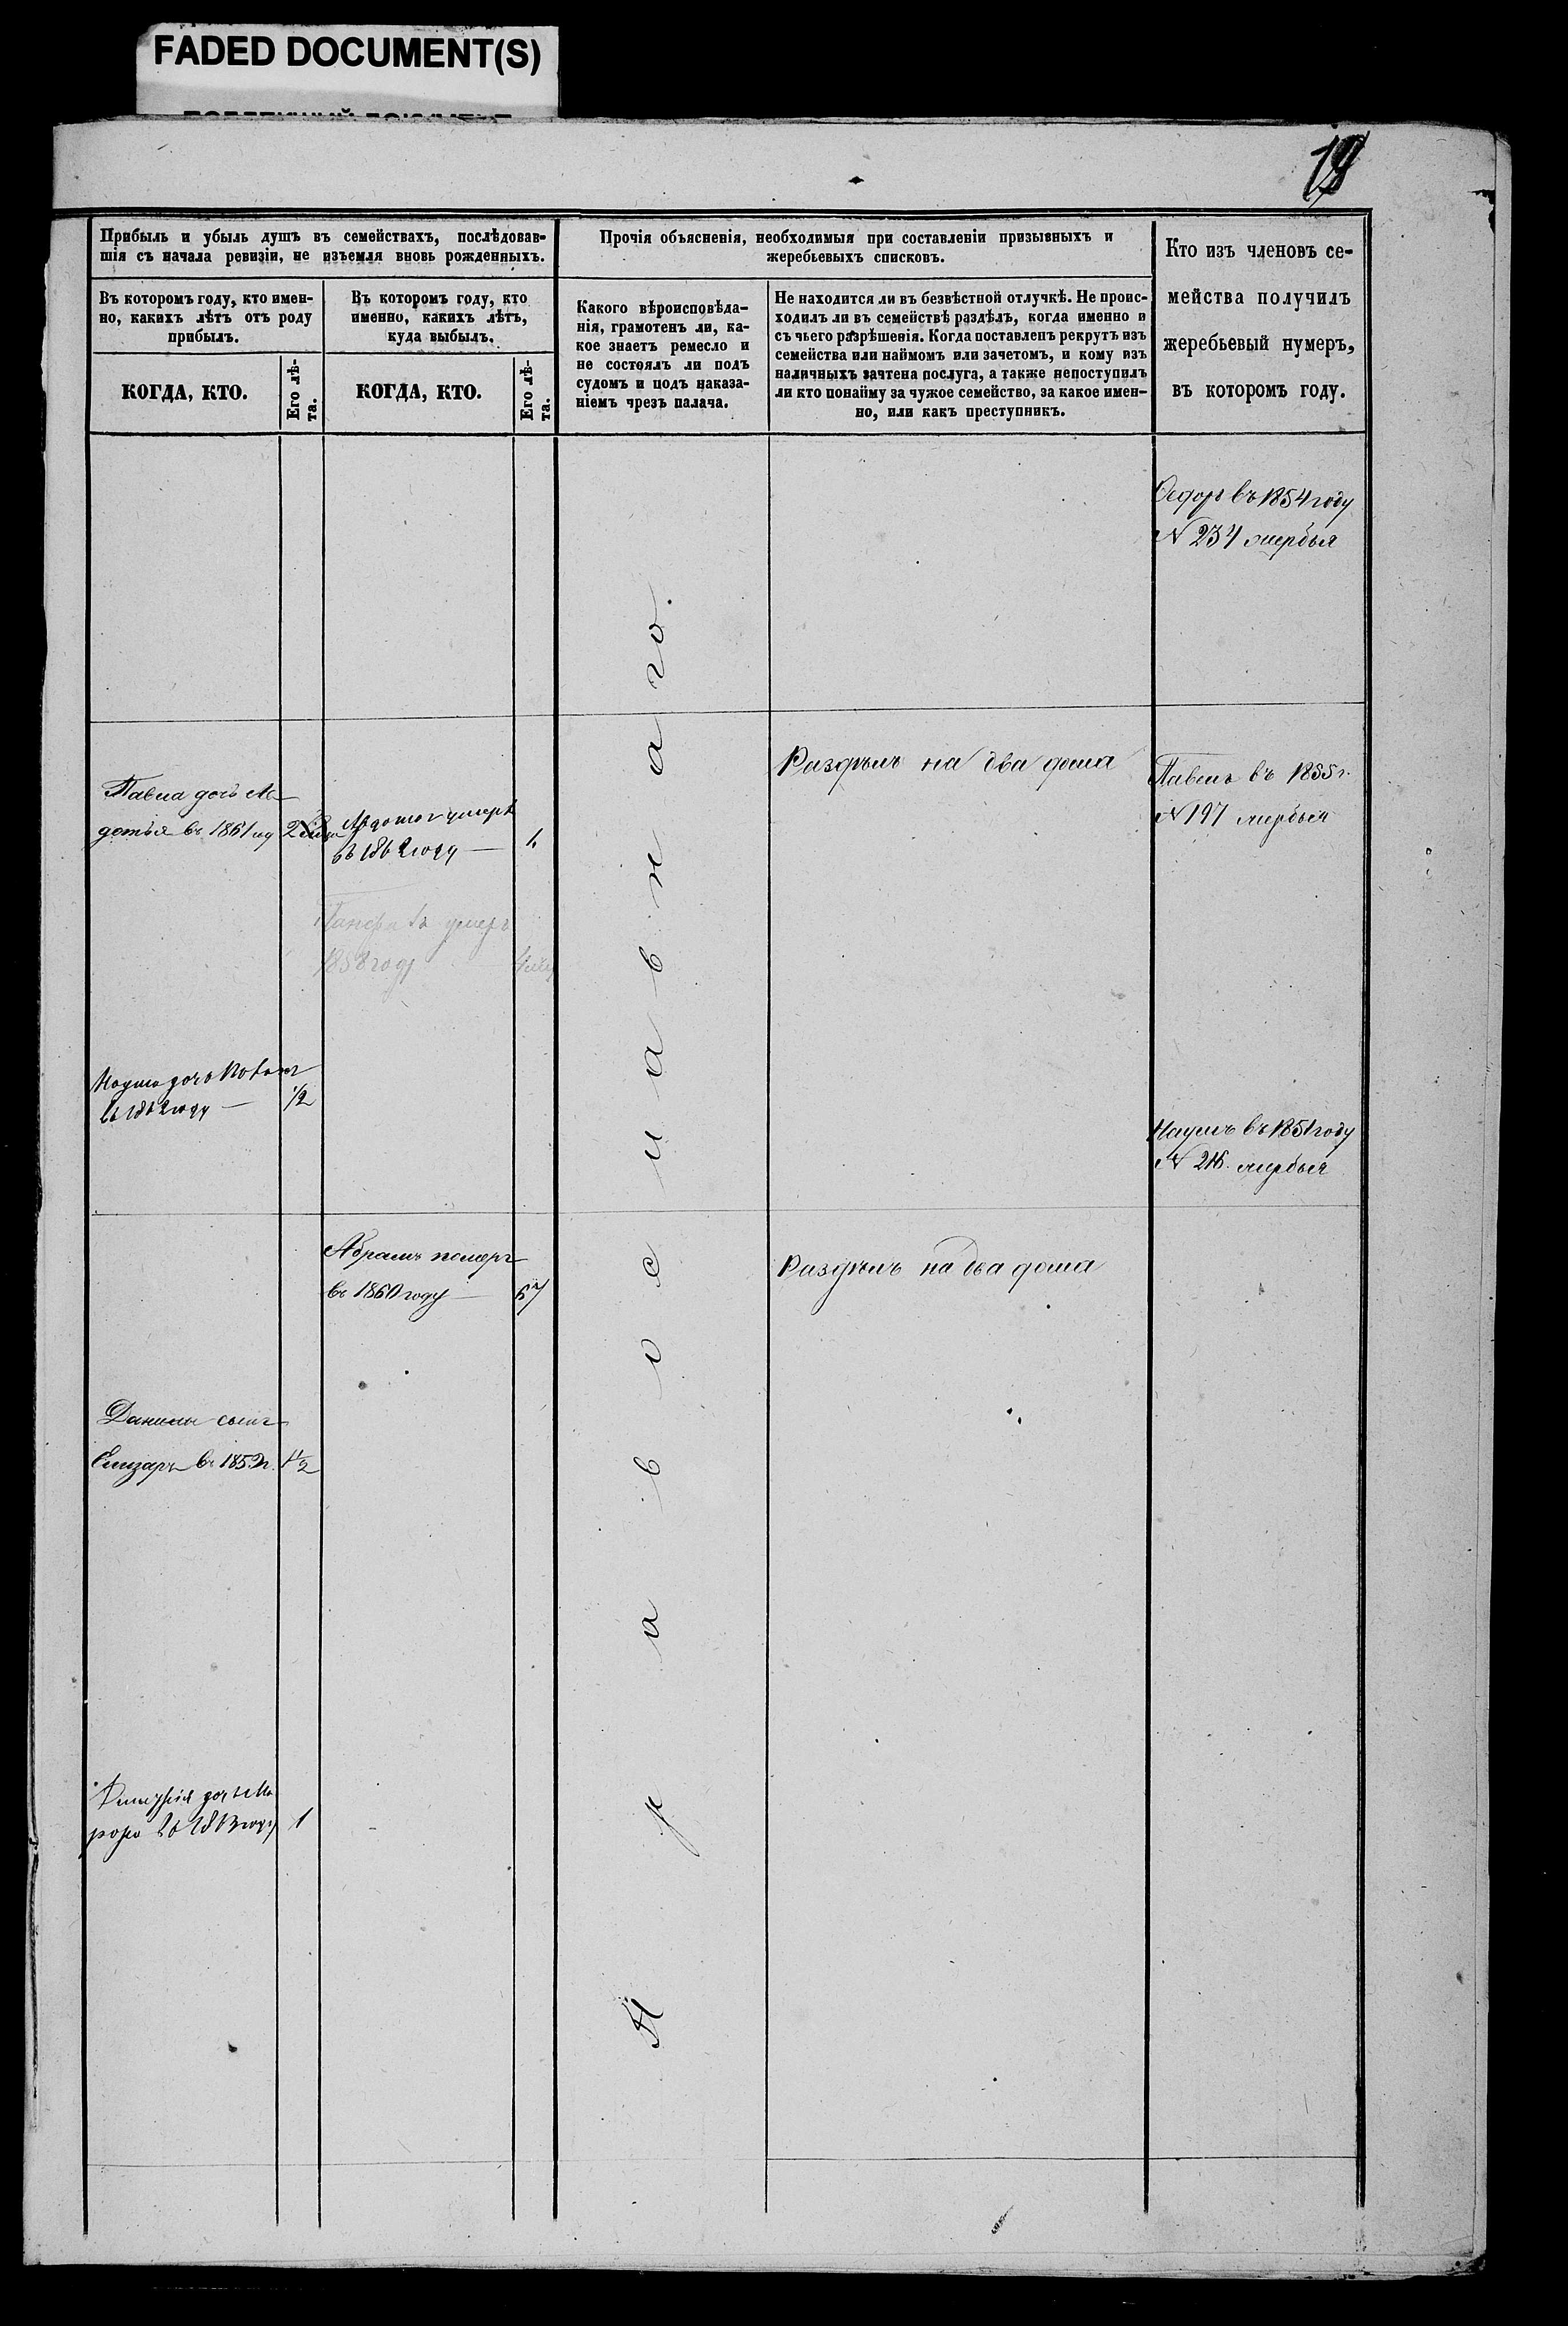 FADED DOCUMENT(S)
19
Прибыль и убыль душъ въ семействахъ, послѣдовав-
шія съ начала ревизіи, не изъемля вновь рожденныхъ.
Въ которомъ году, кто имен-
но, какихъ лѣтъ отъ роду
прибылъ.
КОГДА, КТО.
Его лѣ-
та.
Въ которомъ году, кто
именно, какихъ лѣтъ,
куда выбылъ.
КОГДА, КТО.
Его лѣ-
та.
Прочія объясненія, необходимыя при составленіи призывныхъ и
жеребьевыхъ списковъ.
Какого вѣроисповѣда-
нія, грамотенъ ли, ка-
кое знаетъ ремесло и
не состоялъ ли подъ
судомъ и подъ наказа-
ніемъ чрезъ палача.
Не находится ли въ безвѣстной отлучкѣ. Не проис-
ходилъ ли въ семействѣ раздѣлъ, когда именно и
съ чьего разрѣшенія. Когда поставленъ рекрутъ изъ
семейства или наймомъ или зачетомъ, и кому изъ
наличныхъ зачтена послуга, а также непоступилъ
ли кто понайму за чужое семейство, за какое имен-
но, или какъ преступникъ.
Кто изъ членовъ се-
мейства получилъ
жеребьевый нумеръ,
въ которомъ году.
Федоръ въ 1854 году
N 234 жербья
Православнаго.
Павла дочь Ав
дотья въ 1861 году
Авдотья умерла
въ 1862 году — 1
Раздѣлъ на два дома
Павелъ въ 1855 г.
N 197 жербья
умеръ
1858 году
Наума дочь
въ 1862 году — 1/2
Наумъ въ 1851 году
N 216. жербья
Абрамъ померъ
въ 1860 году — 67
Раздѣлъ на два дома
Данилы сынъ
Елизаръ въ 1859 г. 1/2
1